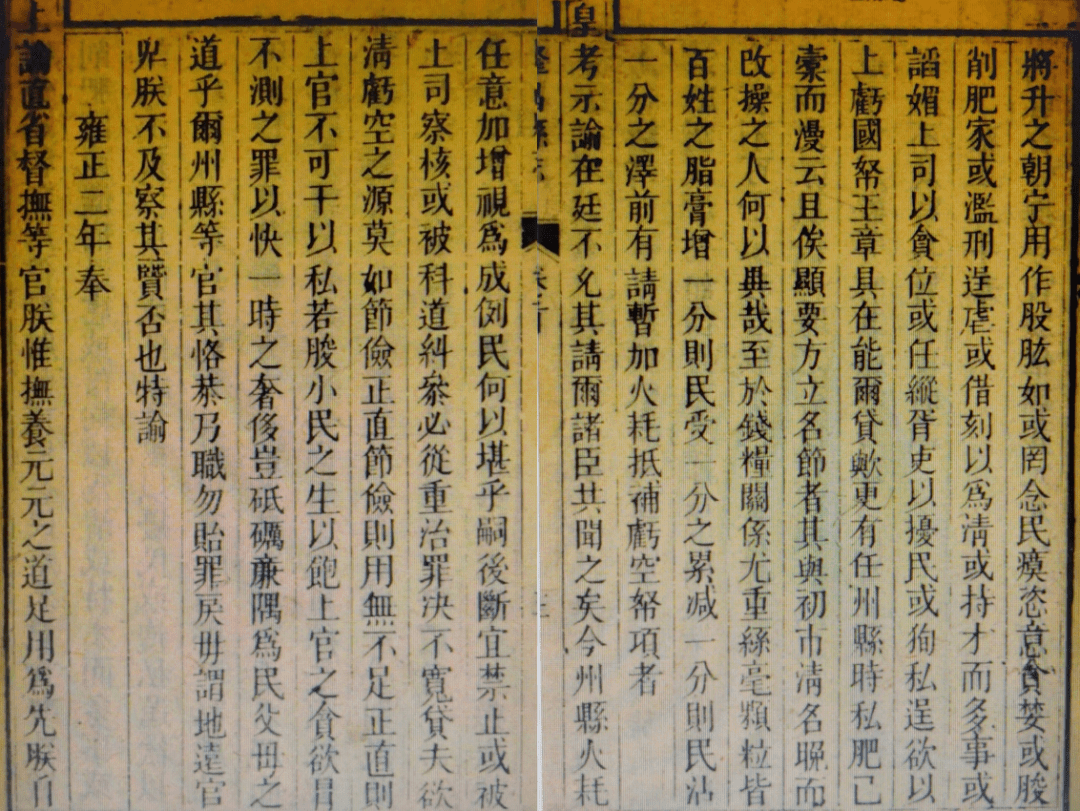 將升之朝宁用作股肱如或罔念民瘼恣意貪婪或朘
削肥家或濫刑逞虐或借刻以爲淸或持才而多事或
謟媚上司以貪位或任縱胥吏以擾民或狥私逞欲以
上虧國帑王章具在能爾貸歟更有任州縣時私肥己
橐而漫云且俟顯要方立名節者其與初市淸名晚而
改操之人何以異哉至於錢糧關係尤重絲毫顆粒皆
百姓之脂膏增一分則民受一分之累减一分則民沾
一分之澤前有請暫加火耗抵補虧空帑項者
皇考示諭在廷不允其請爾諸臣共聞之矣今州縣火耗
任意加增視爲成例民何以堪乎嗣後斷宜禁止或被
上司察核或被科道糾叅必從重治罪决不寬貸夫欲
淸虧空之源莫如節儉正直節儉則用無不足正直則
上官不可干以私若朘小民之生以飽上官之貪欲冒
不測之罪以快一時之奢侈豈砥礪亷隅爲民父母之
道乎爾州縣等官其恪恭乃職勿貽罪戾毋謂地遠官
卑朕不及察其賢否也特諭
雍正二年奉
上諭直省督撫等官朕惟撫養元元之道足用爲先朕自